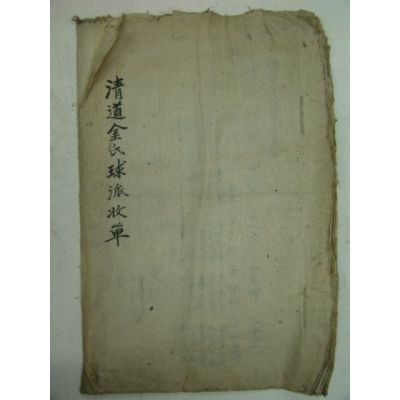 清道金氏球派收單